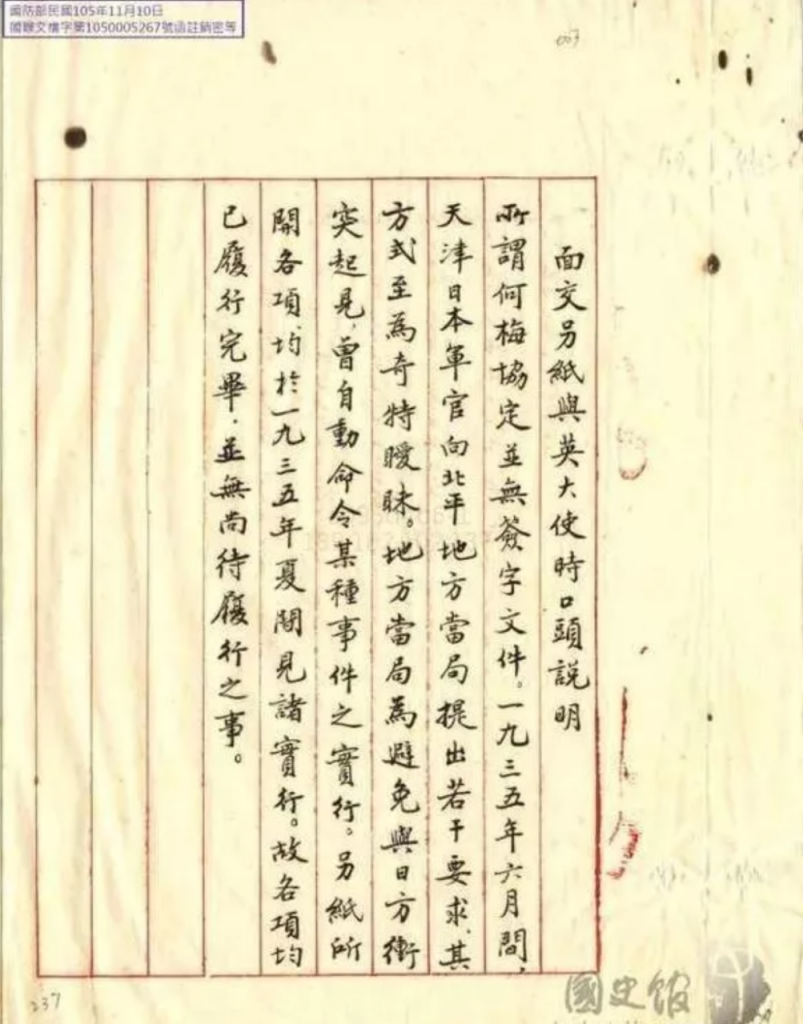 國防部民國105年11月10日
國辦文檔字第1050005267號函註銷密等
003
面交另紙與英大使時口頭説明
所謂何梅協定並無簽字文件。一九三五年六月間，
天津日本軍官向北平地方當局提出若干要求，其
方式至為奇特曖昧。地方當局為避免與日方衝
突起見，曾自動命令某種事件之實行。另紙所
開各項，均於一九三五年夏間見諸實行。故各項均
已履行完畢，並無尚待履行之事。
237
國史館